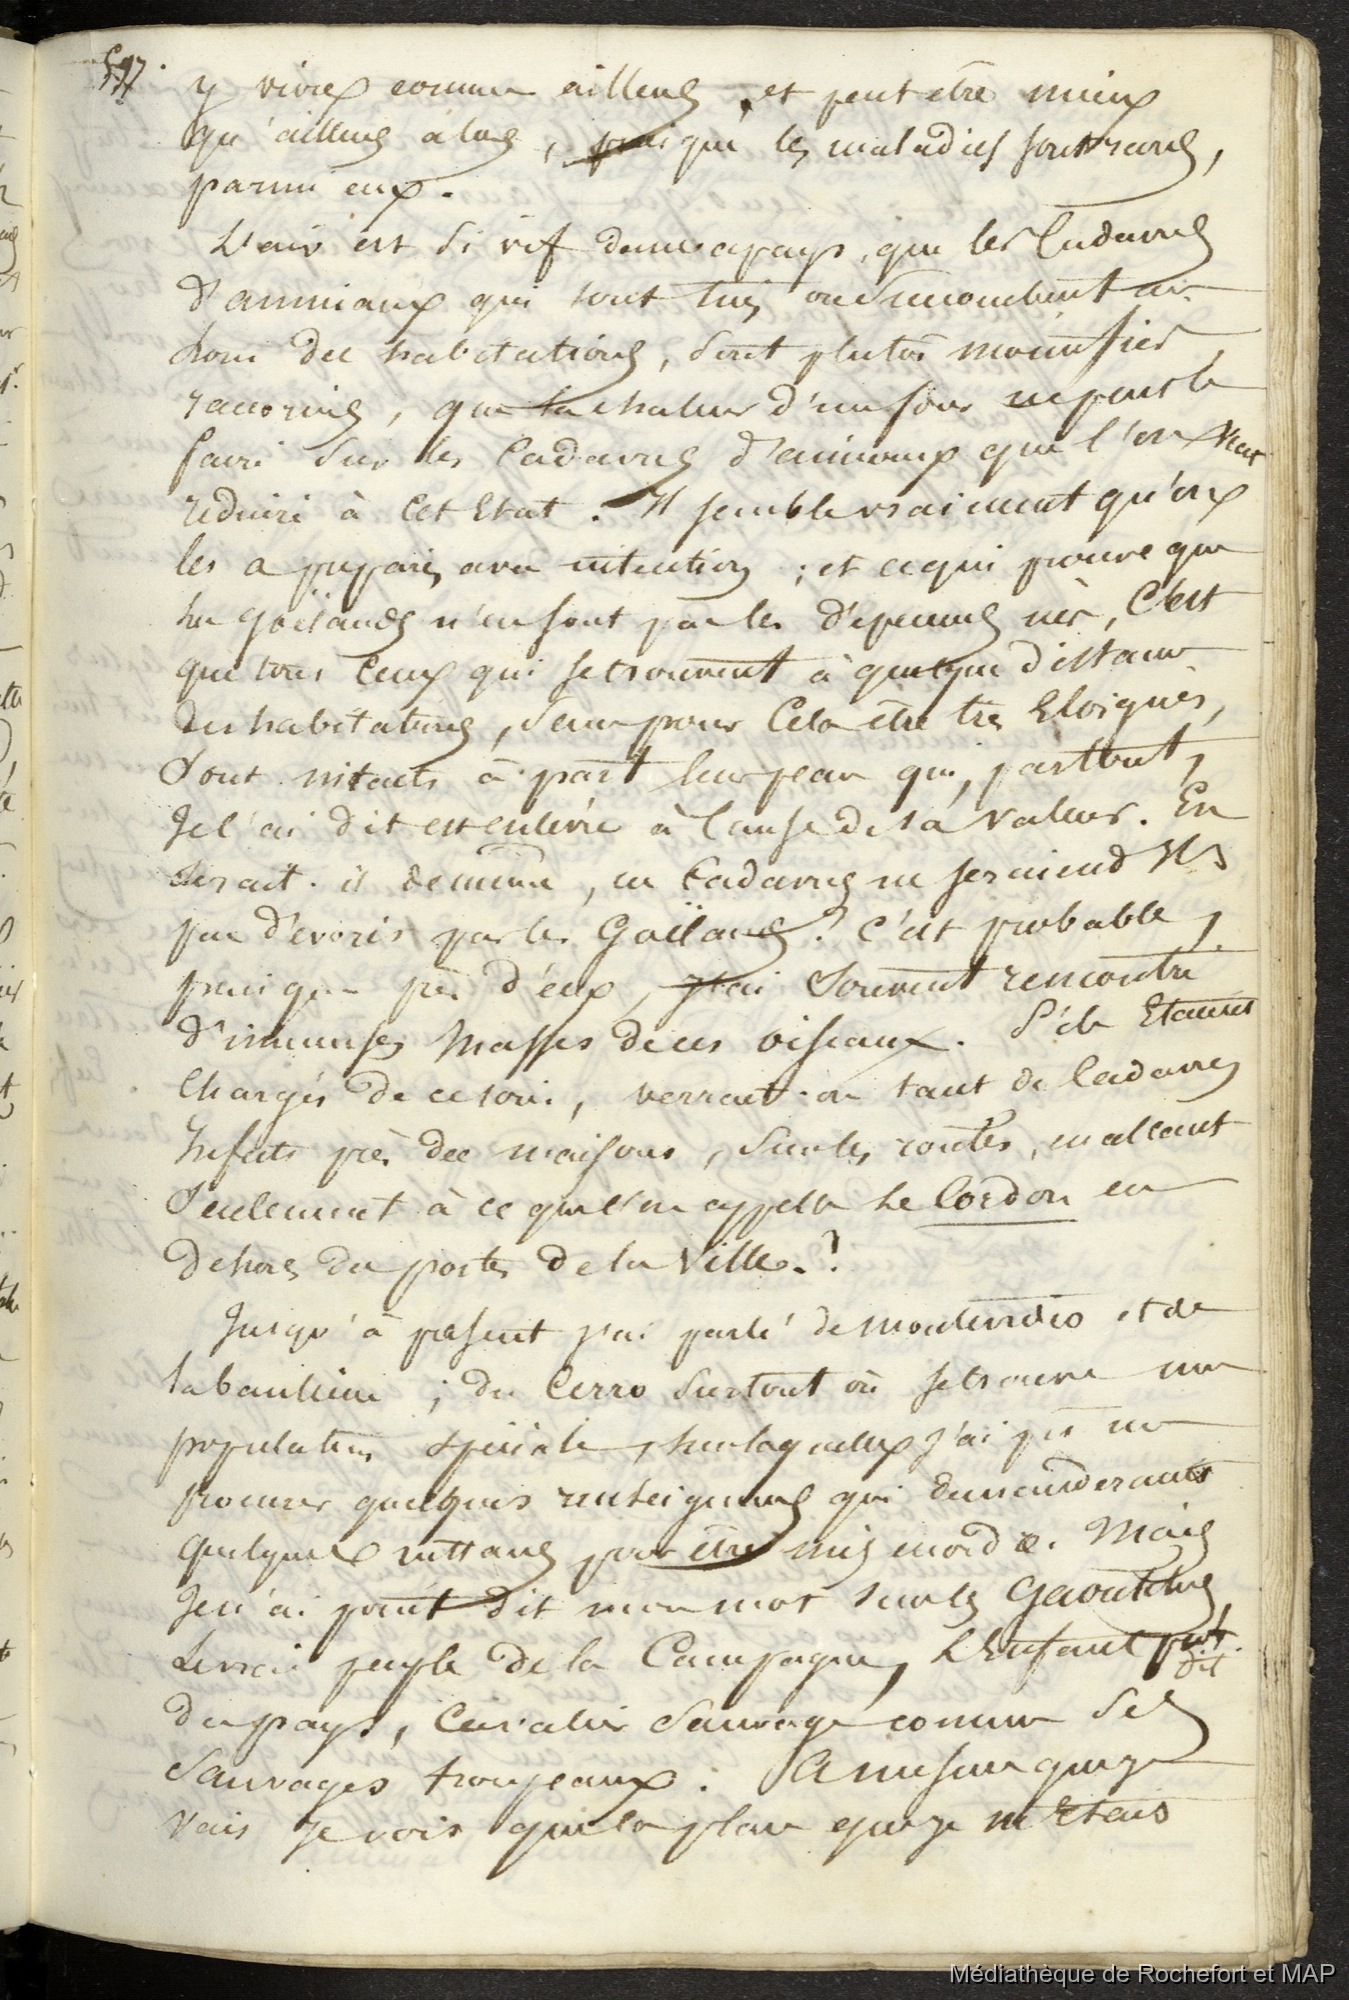 597.
y vivre comme ailleurs, et peut être mieux
qu'ailleurs alors, puisque les maladies sont rares,
parmi eux.
L'air est si vif dans ce pays, que les Cadavres
d'animaux qui sont tués ou succombent au
tour des habitations, sont plutôt momifiés,
racornis, que la chaleur d'un four ne peut le
faire sur les Cadavres d'animaux que l'on veut
réduire à cet Etat. Il semble vraiment qu'on
les a préparés avec intention ; et ce qui prouve que
les goëlands n'en font pas les dépeceurs nés, C'est
que tous Ceux qui se trouvent à quelque distance
des habitations, sans pour Cela être très Eloignés,
Sont intacts à part leur peau qui, partout,
Je l'ai dit est enlevée à Cause de sa valeur. En
serait-il de même, ces Cadavres ne seraient ils
pas dévorés par les Goëlands? C'est probable,
puisque près d'eux, j'ai Souvent rencontré
d'immenses Masses de ces oiseaux. S'ils Etaient
Chargés de ce soin, verrait-on tant de Cadavres
Infects près des maisons, sur les routes, en allant
Seulement à ce que l'on appelle Le Cordon en
dehors des portes de la Ville.?
Jusqu'à présent j'ai parlé de Montevideo et de
sa banlieue ; du Cerro Surtout où se trouve une
population spéciale, sur laquelle j'ai pu me
procurer quelques renseignemens qui demanderaient
quelques instans pour être mis en ordre. Mais
Je n'ai point dit mon mot sur les Gaoutchos,
Le vrai peuple de la Campagne, L'Enfant prt
dit
du pays, Cavalier Sauvage comme Ses
Sauvages troupeaux. A mesure que je
vais je vois que le plan que je m'Etais
Médiathèque de Rochefort et MAP